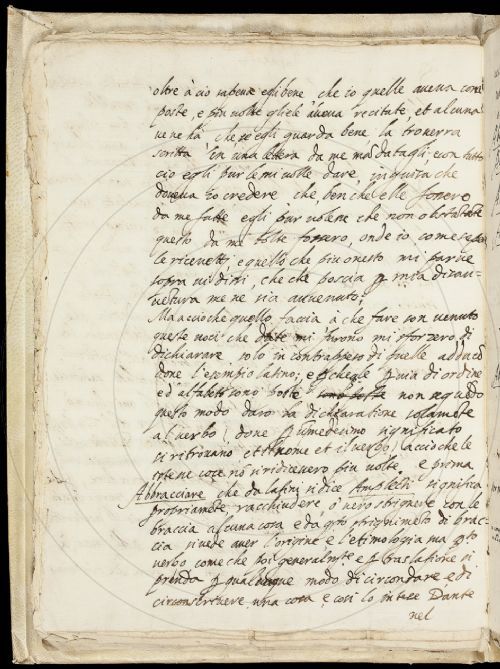 oltre à ciò sapeva egli bene che io quelle aveva com
poste, e più volte gliele aveva recitate, et alcuna
ve ne hà che se egli guarda bene la troverra
scritta in una lettera da me mandatagli; con tutto
ciò egli pur le mi volle dare in guisa che
doveva io credere che, benche elle fossero
da me fatte egli pur voleva che non obstante
questo da me tolte fossero, onde io come
le ricevetti e quello che più onesto mi parve
sopra vi dissi, che che poscia p mia disav-
ventura me ne sia avvenuto;
Ma acciò che quello faccia à che fare son venuto
queste voci che date mi furono mi sforzero di
dichiarare solo in contrappeso di quelle adducendo
dove l'esempio latino; e p che p via di ordine
ed alfabeto sono poste non seguendo
questo modo daro la dichiaratione solamente
al verbo dove p il medesimo significato
si ritrovano et il nome et il verbo acciò che le
cose nō si ridicevero più volte. e prima
Abbracciare che da latini si dice Amplecti significa
propriamente racchiudere, ò vero strignere con le
braccia alcuna cosa e da qsto strignimēto di brac-
cia si vede aver l'origine e l'etimologia ma qsto
verbo come che poi generalmte e p traslatione si
prenda p qualunque modo di circondare e di
circonscrivere una cosa e così lo intese Dante
nel